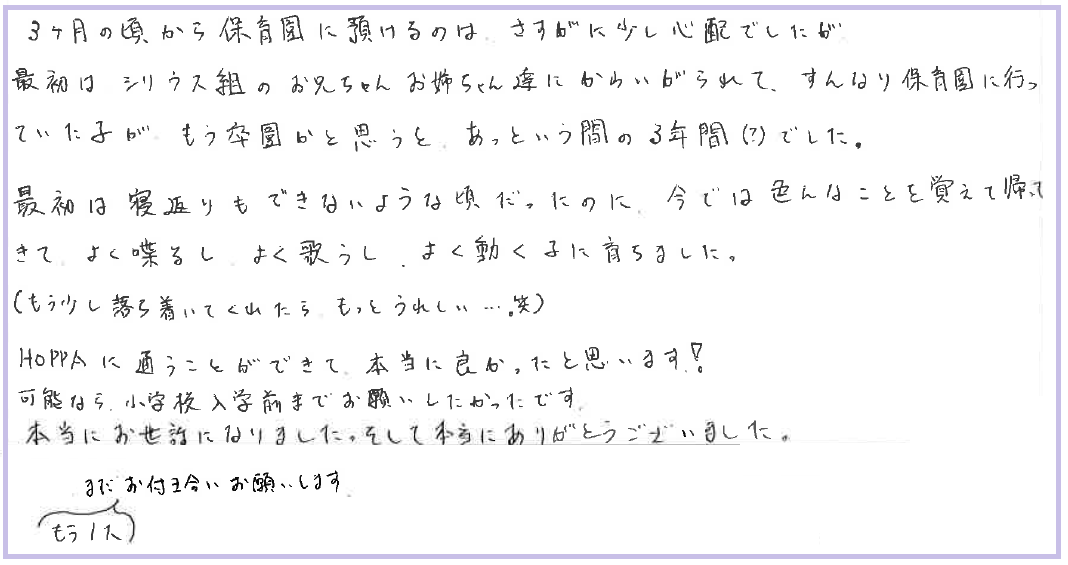 3ヶ月の頃から保育園に預けるのは、さすがに少し心配でしたが
最初はシリウス組のお兄ちゃんお姉ちゃん達にかわいがられて、すんなり保育園に行っ
ていた子が、もう卒園かと思うと、あっという間の3年間(?)でした。
最初は寝返りもできないような頃だったのに、今では色んなことを覚えて帰って
きて、よく喋るし、よく歌うし、よく動く子に育ちました。
(もう少し落ち着いてくれたら、もっとうれしい…。笑)
HOPPAに通うことができて、本当に良かったと思います!
可能なら、小学校入学前までお願いしたかったです。
本当にお世話になりました。そして本当にありがとうございました。
まだお付き合いお願いします。
(もう1人)